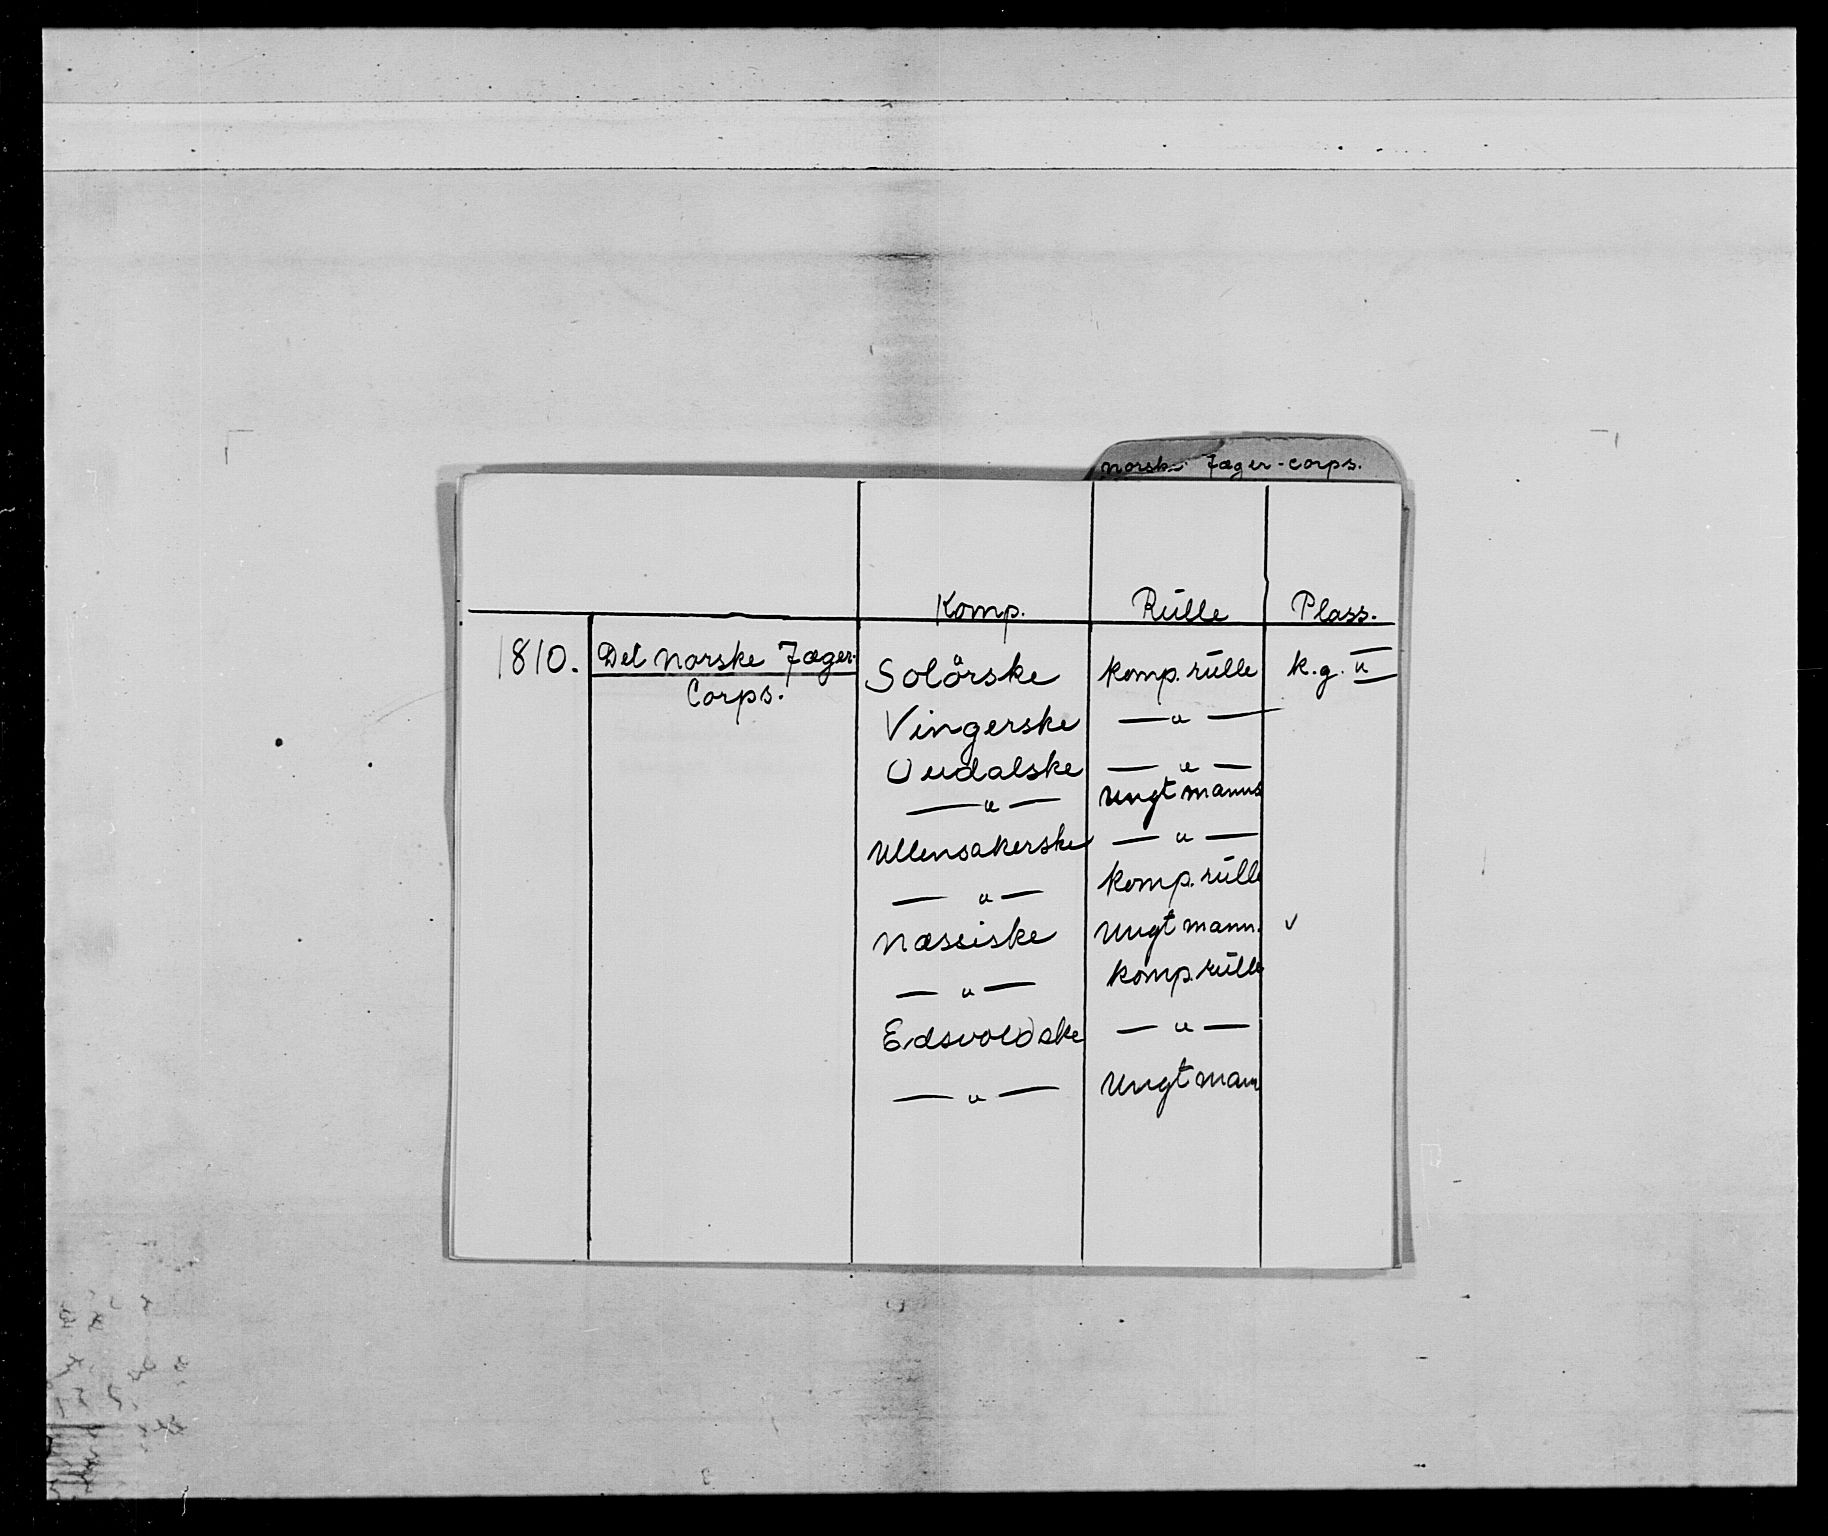 Norske Jæger-Corps.
Komp. Rulle Plass.
1810. Det Norske Jæger- Solörske komp. rulle k.g. II
Corps.
Vingerske — " —
Oudalske — " —
— " — Ungtmanns
Ullensakerske — " —
— " — komp. rulle
Næssiske Ungtmann. v
— " — komp. rulle
Edsvoldske — " —
— " — Ungtmann